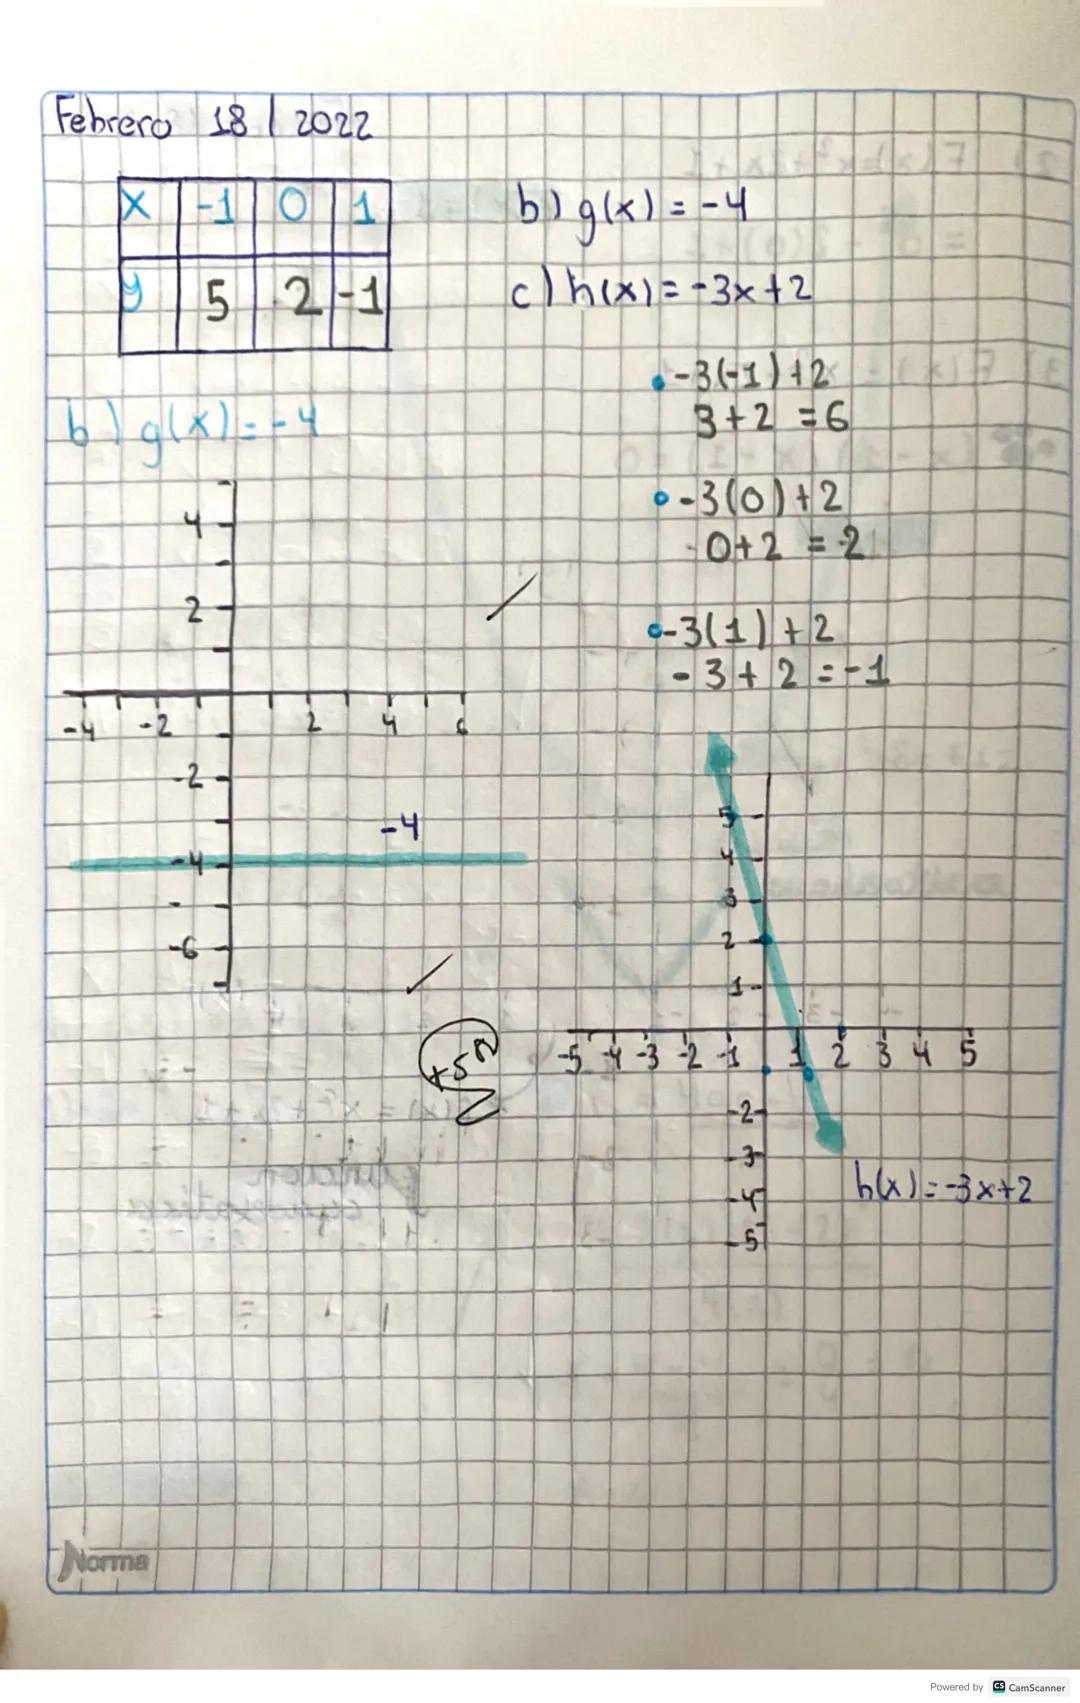 Febrero 18 / 2022
x -1 0 1
y 5 2 -1
b) g(x) = -4
c) h(x) = -3x + 2
• -3(-1) + 2
3 + 2 = 6
• -3(0) + 2
0 + 2 = 2
• -3(1) + 2
-3 + 2 = -1
b) g(x) = -4
4
2
-4 -2 2 4 6
-2
-4
-4
-6
+5
5
4
3
2
1
-5 -4 -3 -2 -1 1 2 3 4 5
-2
-3
-4
-5
h(x) = -3x + 2
Norma
Powered by CS CamScanner